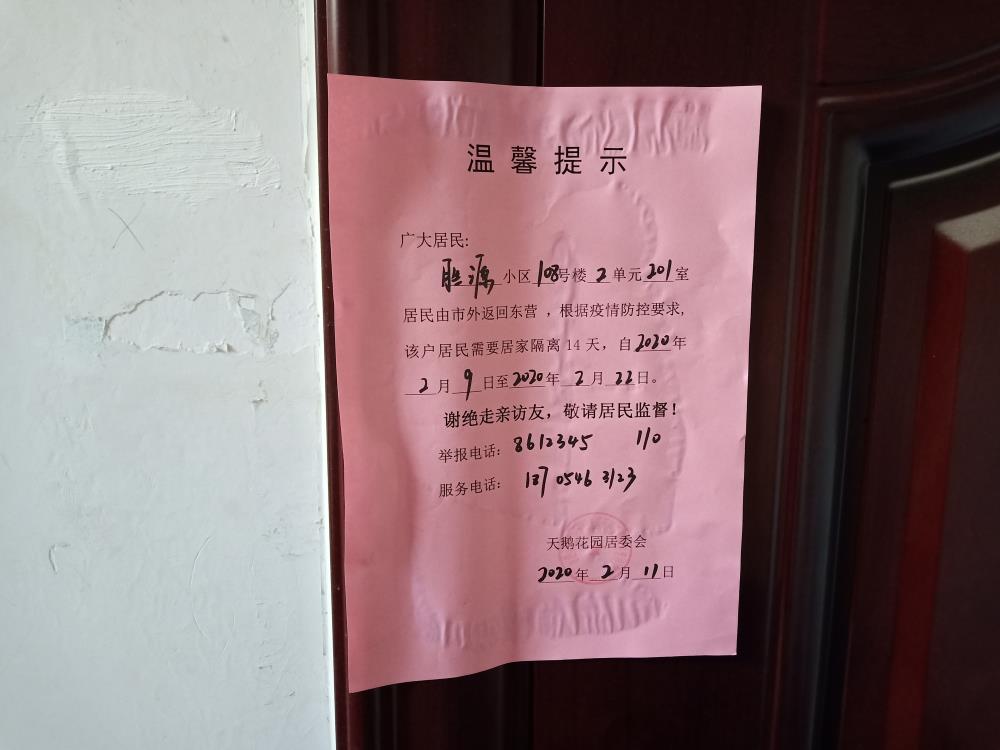 温馨提示
广大居民:
胜源小区108号楼2单元201室
居民由市外返回东营，根据疫情防控要求,
该户居民需要居家隔离14天，自2020年
2月9日至2020年2月22日。
谢绝走亲访友，敬请居民监督！
举报电话：8612345 110
服务电话：137 0546 3123
天鹅花园居委会
2020年2月11日